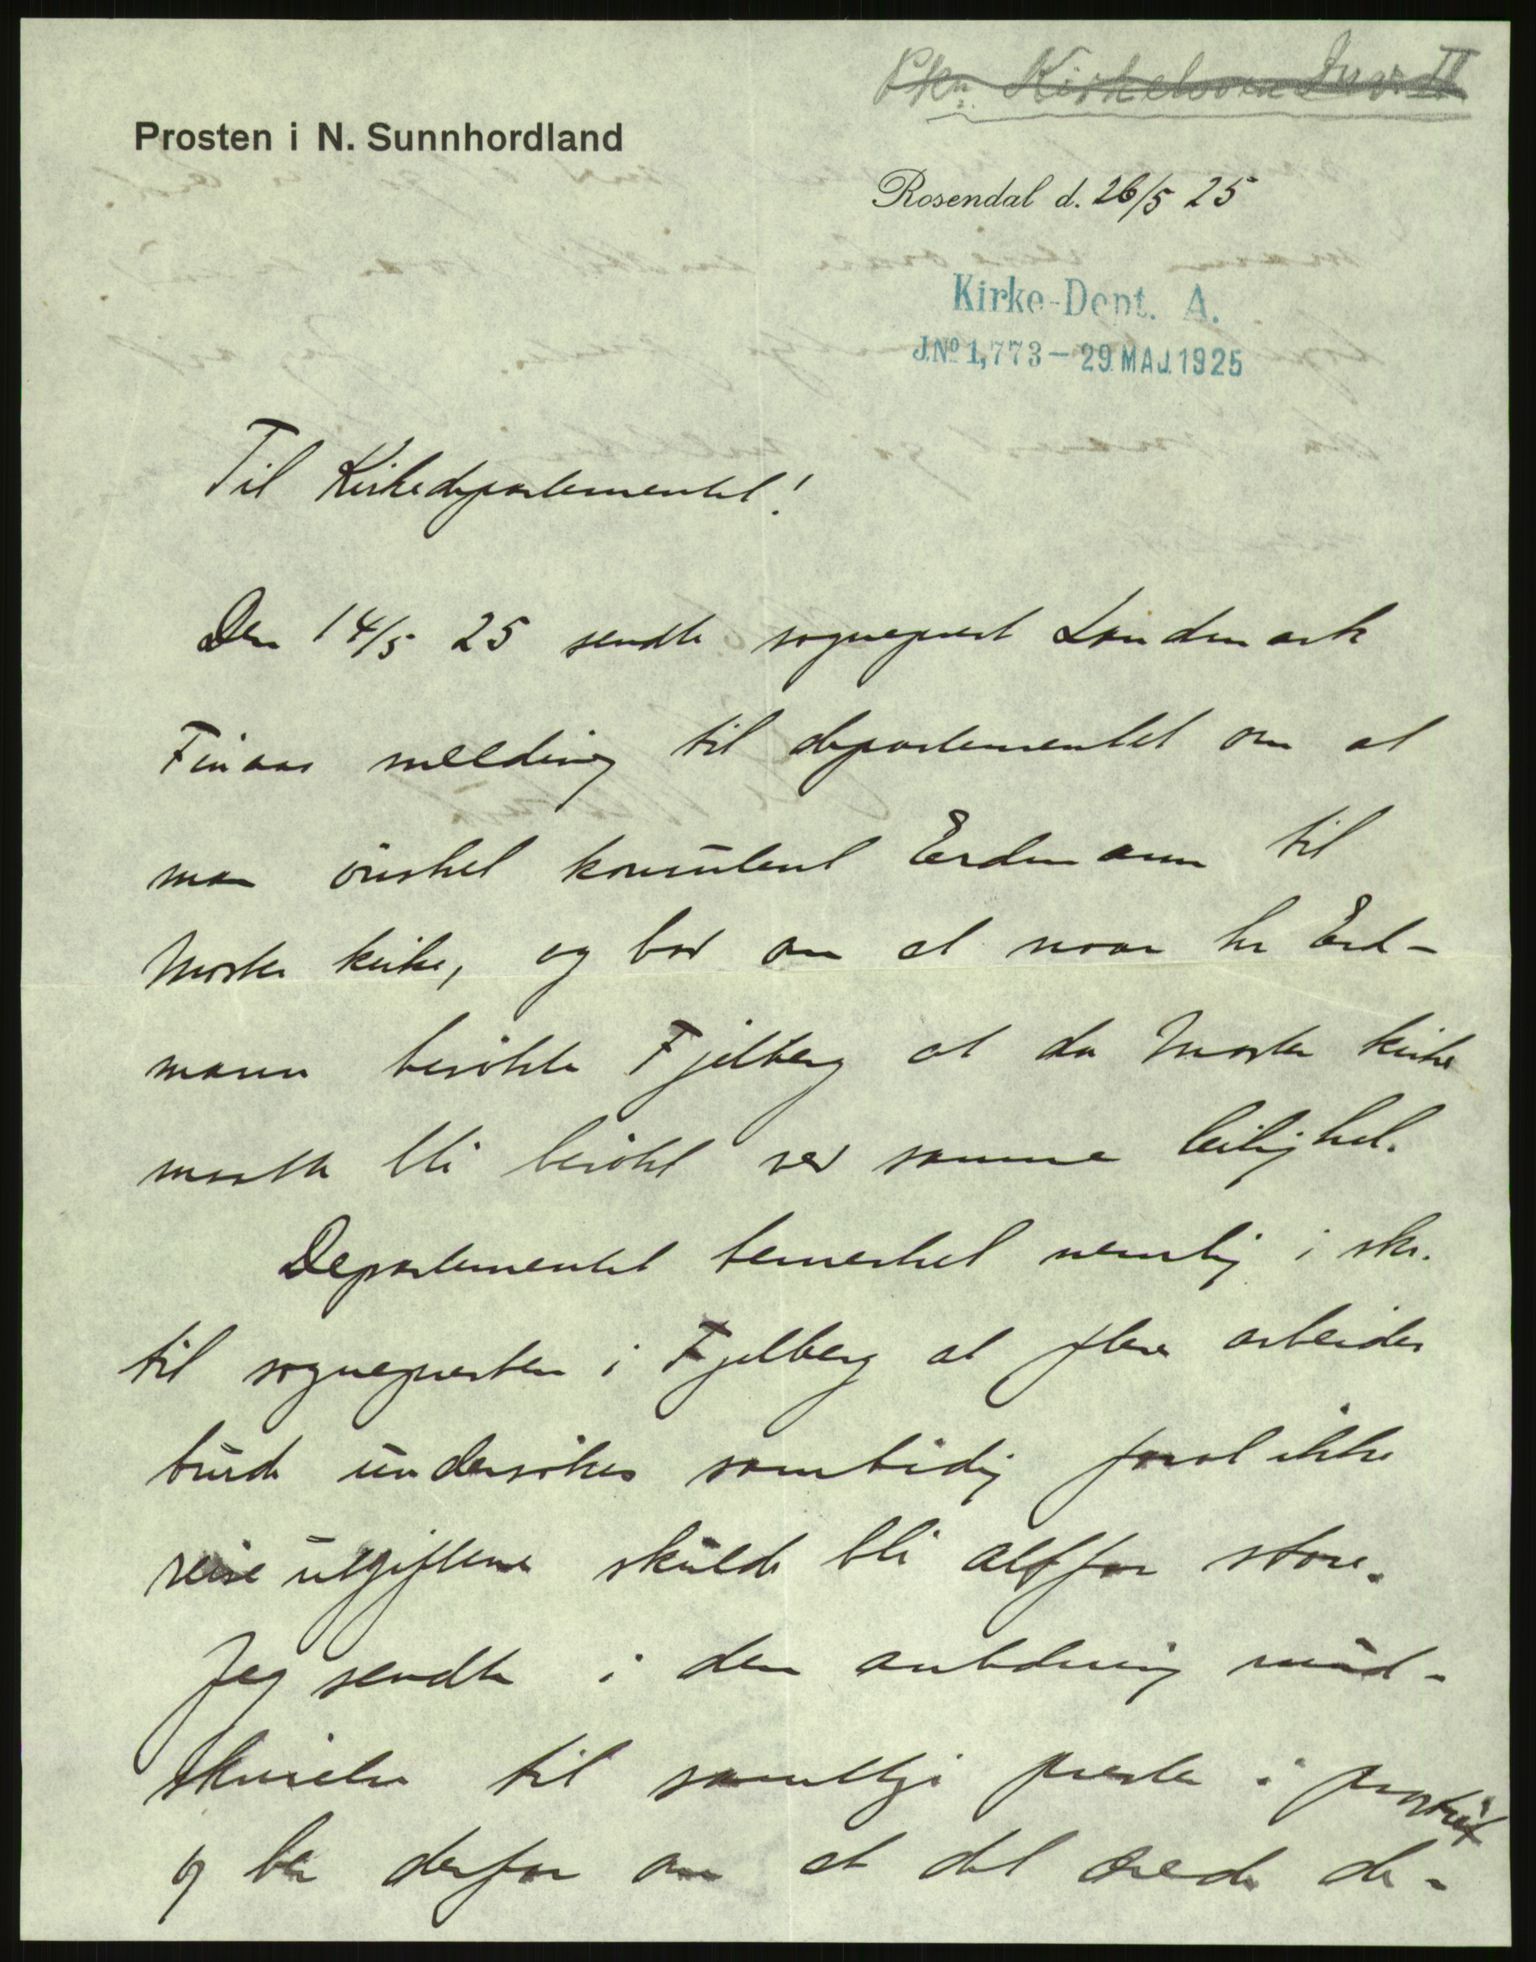 Kirkeloven II
Prosten i N. Sunnhordland
Rosendal d. 26/5 25
Kirke-Dept. A.
J.No 1,773 - 29. MAJ. 1925
Til Kirkedepartementet!
Den 14/5 25 sendte sogneprest Landmark
Finaas melding til departementet om at
man ønsket konsulent Erdmann til
Moster kirke, og bad om at naar hr Erd-
mann besøkte Fjelberg at da Moster kirke
maatte bli besøkt ved samme leilighet.
Departementet bemerket nemlig i skr.
til sognepresten i Fjelberg at flere arbeider
burde undersøkes samtidig forat ikke
reiseutgiftene skulde bli altfor store.
Jeg sendte i den anledning rund-
skrivelse til samtlige prester i prostiet
og ber derfor om at det ærede de-